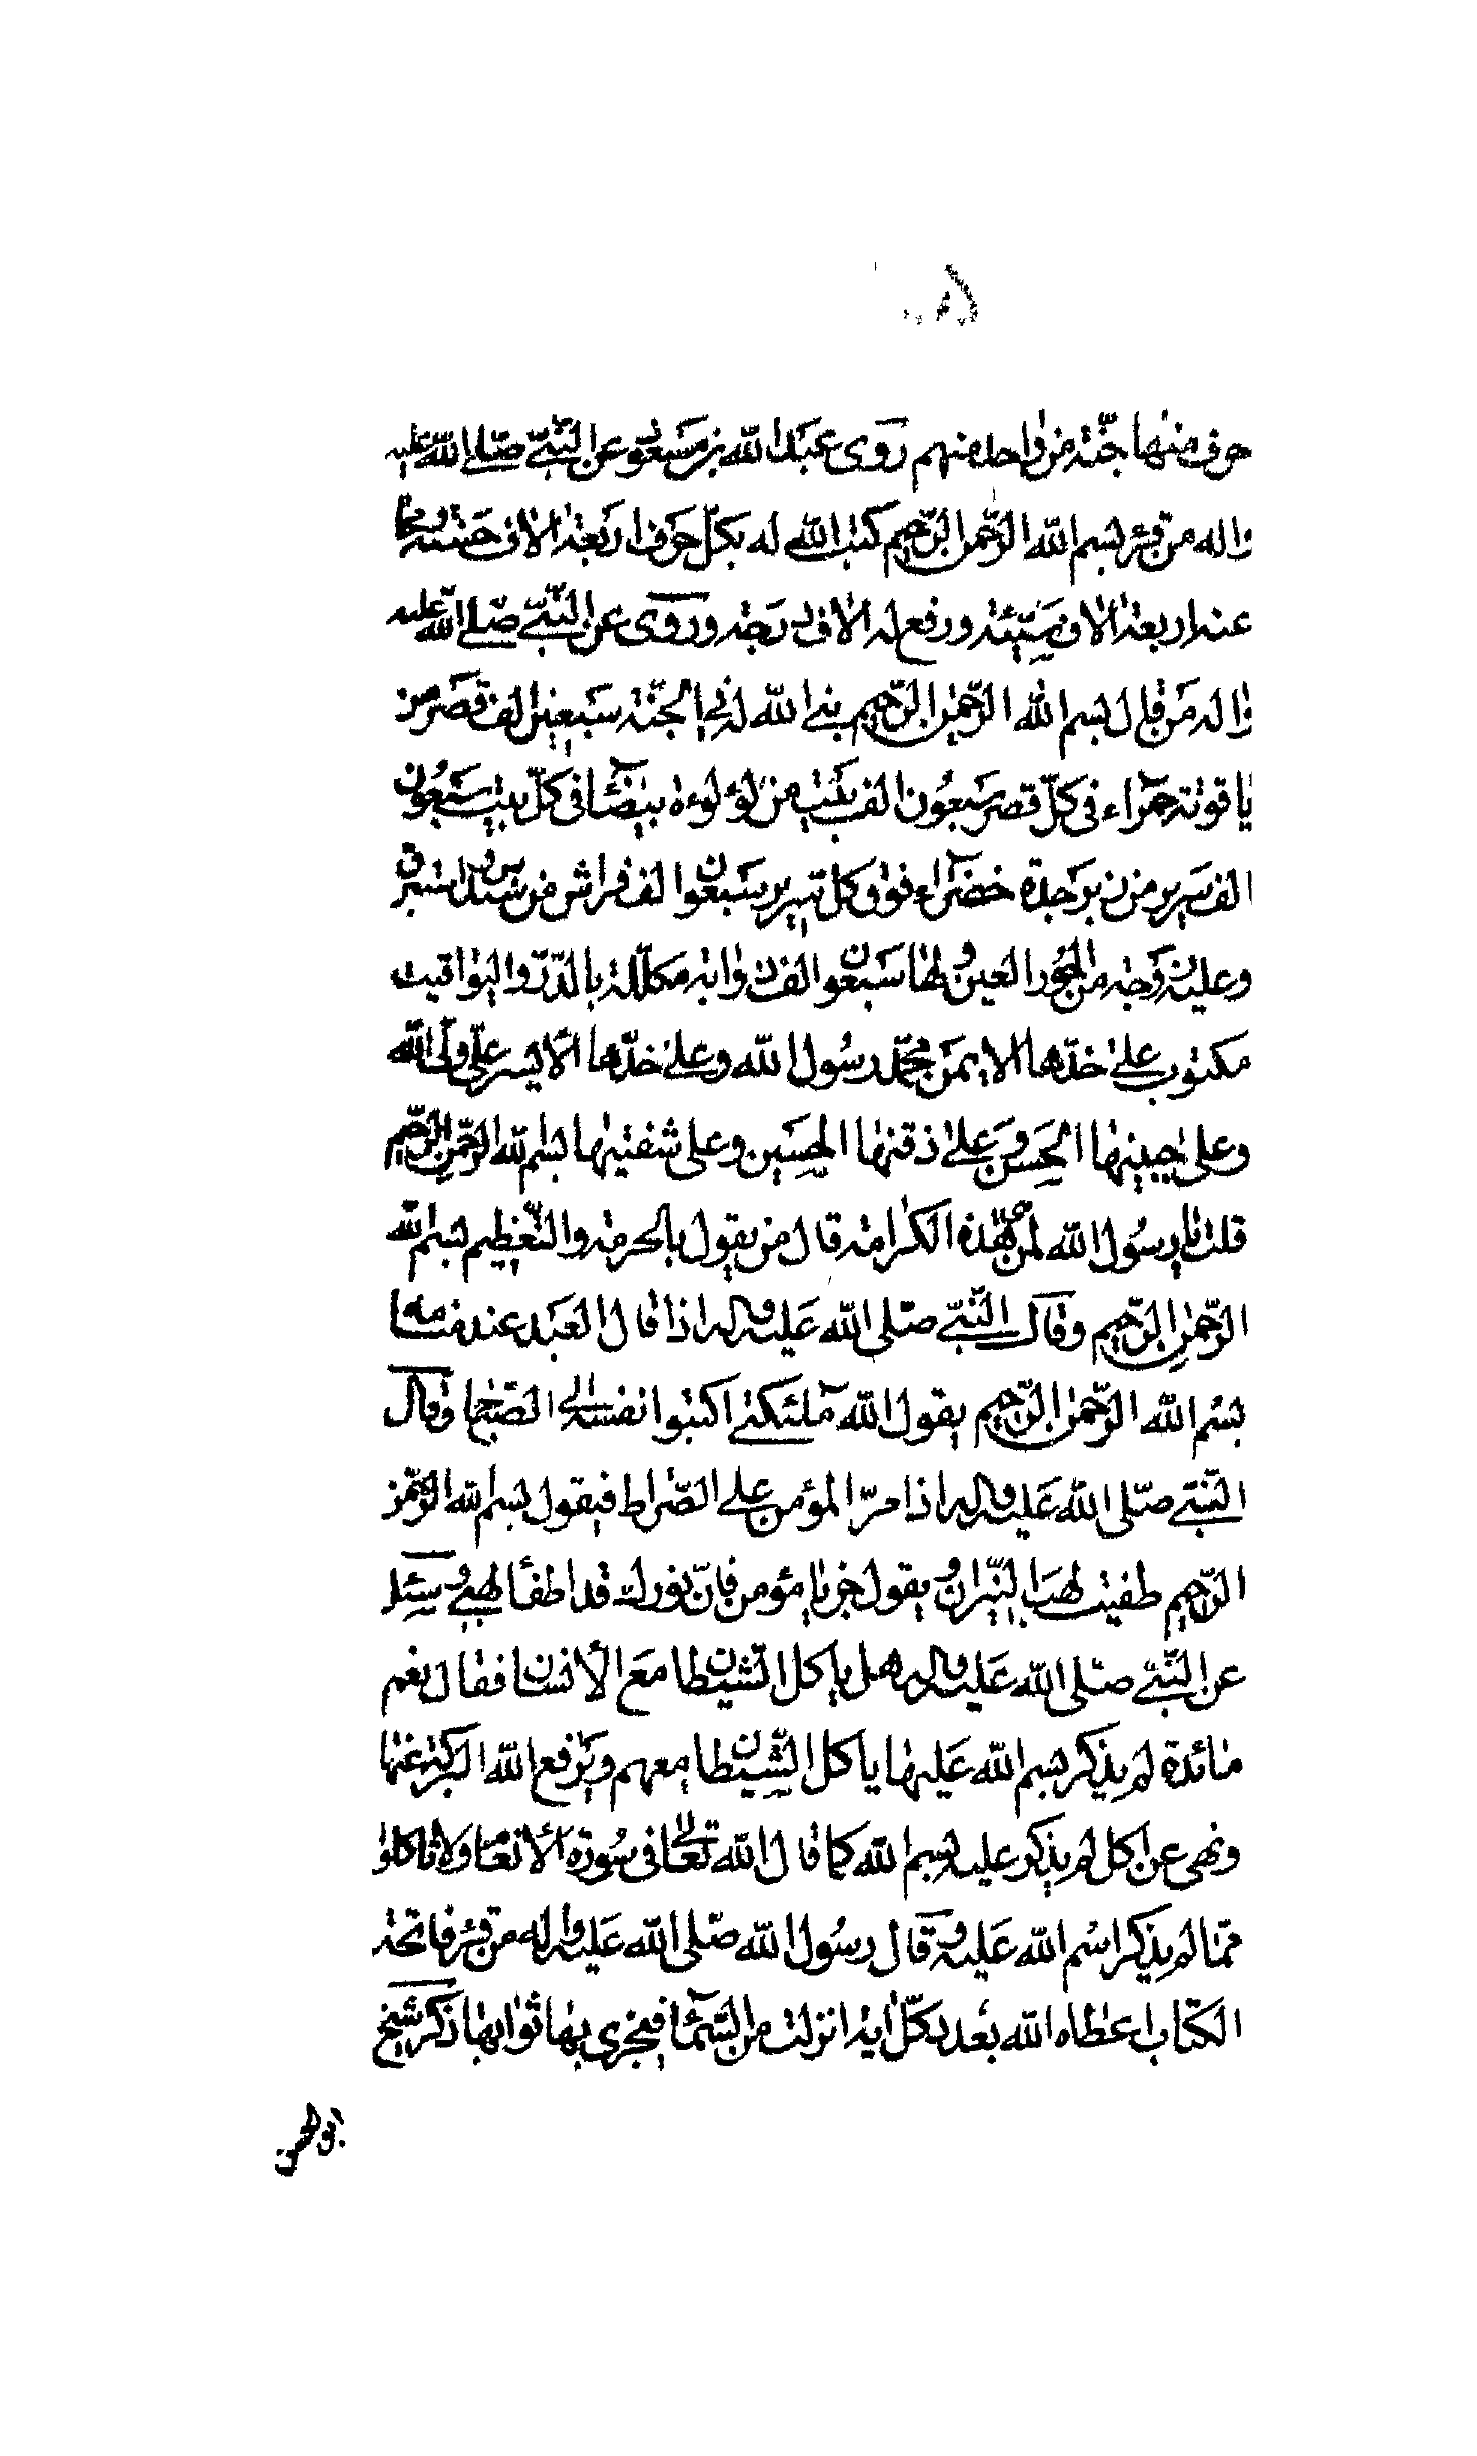 حرف منها جنّة من واحد منهم روى عبد الله بن مسعود عن النّبىّ صلّى الله عليه
واله من قرء بسم الله الرّحمن الرّحيم كتب الله له بكلّ حرف اربعة الاف حسنة ومحا
عنه اربعة الاف سيّئة ورفع له الاف درجة وروى عن النّبىّ صلّى الله عليه
واله من قال بسم الله الرّحمن الرّحيم بنى الله له فى الجنّة سبعين الف قصر من
ياقوتة حمراء فى كلّ قصر سبعون الف بيت من لؤلوءة بيضآء فى كلّ بيت سبعون
الف سرير من زبرجدة خضرآء فوق كل سرير سبعون الف فراش من سندس واستبرق
وعليه زوجة من الحور العين ولها سبعون الف ذوابة مكلّلة بالدّرّ واليواقيت
مكتوب على خدّها الايمن محمّد رسول الله وعلى خدّها الأيسر علىّ ولىّ الله
وعلى جبينها الحسن وعلى ذقنها الحسين وعلى شفتيها بسم الله الرّحمن الرّحيم
قلت يا رسول الله لمن هذه الكرامة قال من يقول بالحرمة والتّعظيم بسم الله
الرّحمن الرّحيم وقال النّبىّ صلّى الله عليه واله اذا قال العبد عند منامه
بسم الله الرّحمن الرّحيم يقول الله ملئكتى اكتبوا نفسه الى الصّباح وقال
النّبىّ صلّى الله عليه واله اذا مرّ المؤمن على الصّراط فيقول بسم الله الرّحمن
الرّحيم طفيت لهب النّيران ويقول جز يا مؤمن فانّ نورك قد اطفأ لهبى وسئل
عن النّبىّ صلّى الله عليه واله هل يأكل الشّيطان مع الأنسان فقال نعم
مائدة لم يذكر بسم الله عليها ياكل الشّيطان معهم ويرفع الله البركة عنها
ونهى عن اكل لم يذكر عليه بسم الله كما قال الله تعالى فى سورة الأنعام ولا تاكلوا
ممّا لم يذكر اسم الله عليه وقال رسول الله صلّى الله عليه واله من قرء فاتحة
الكتاب اعطاه الله بعدد كلّ اية انزلت من السّمآء فيجزى بها ثوابها ذكر شيخ